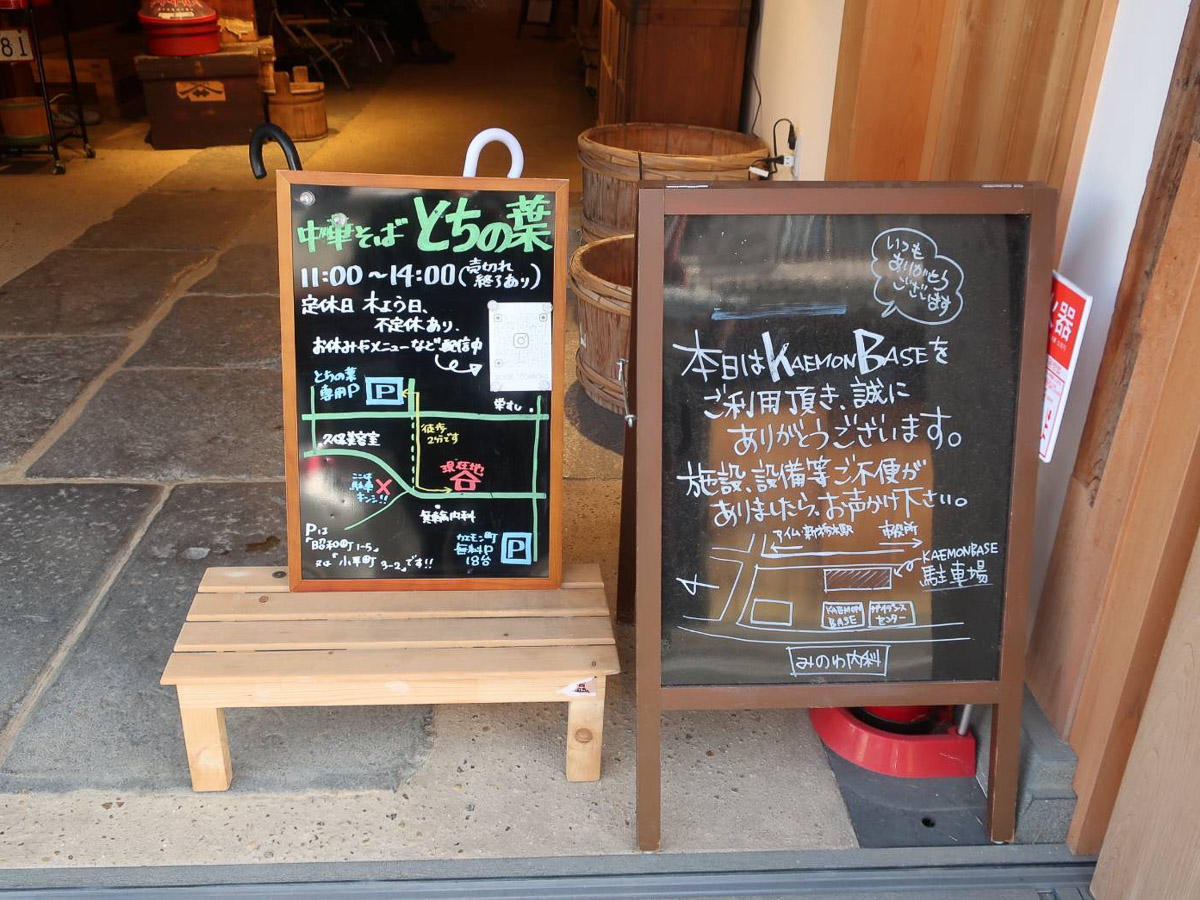 81
中華そば とちの葉
11:00～14:00(売切れ
終了あり)
定休日 木よう日、
不定休あり.
お休み&メニューなど配信中
とちの葉
専用P
P
栄すし
徒歩
2分です
久保美容室
現在地
谷
ここは
駐車
キンシ!!
×
箕輪内科
Pは
「昭和町1-5」
又は「小平町3-2」です!!
カエモン町
無料P
18台
P
いつも
ありがとう
ございます
本日はKAEMON BASEを
ご利用頂き、誠に
ありがとうございます。
施設、設備等ご不便が
ありましたら、お声かけ下さい。
アイム 新栃木駅
市役所
KAEMONBASE
駐車場
KAEMON
BASE
センター
みのわ内科
器